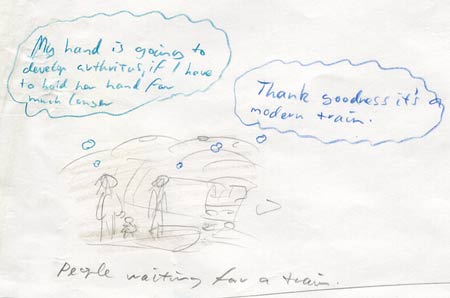 My hand is going to
develop arthritus, if I have
to hold her hand for
much longer
Thank goodness it's a
modern train.
People waiting for a train.